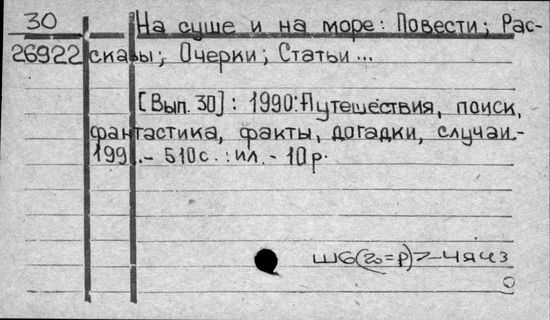 30 На суше и на море: Повести; Рас-
26922 сказы; Очерки; Статьи...
[Вып. 30]: 1990: Путешествия, поиск,
фантастика, факты, догадки, случаи.-
199 .- 510 с. : ил. - 10 р.